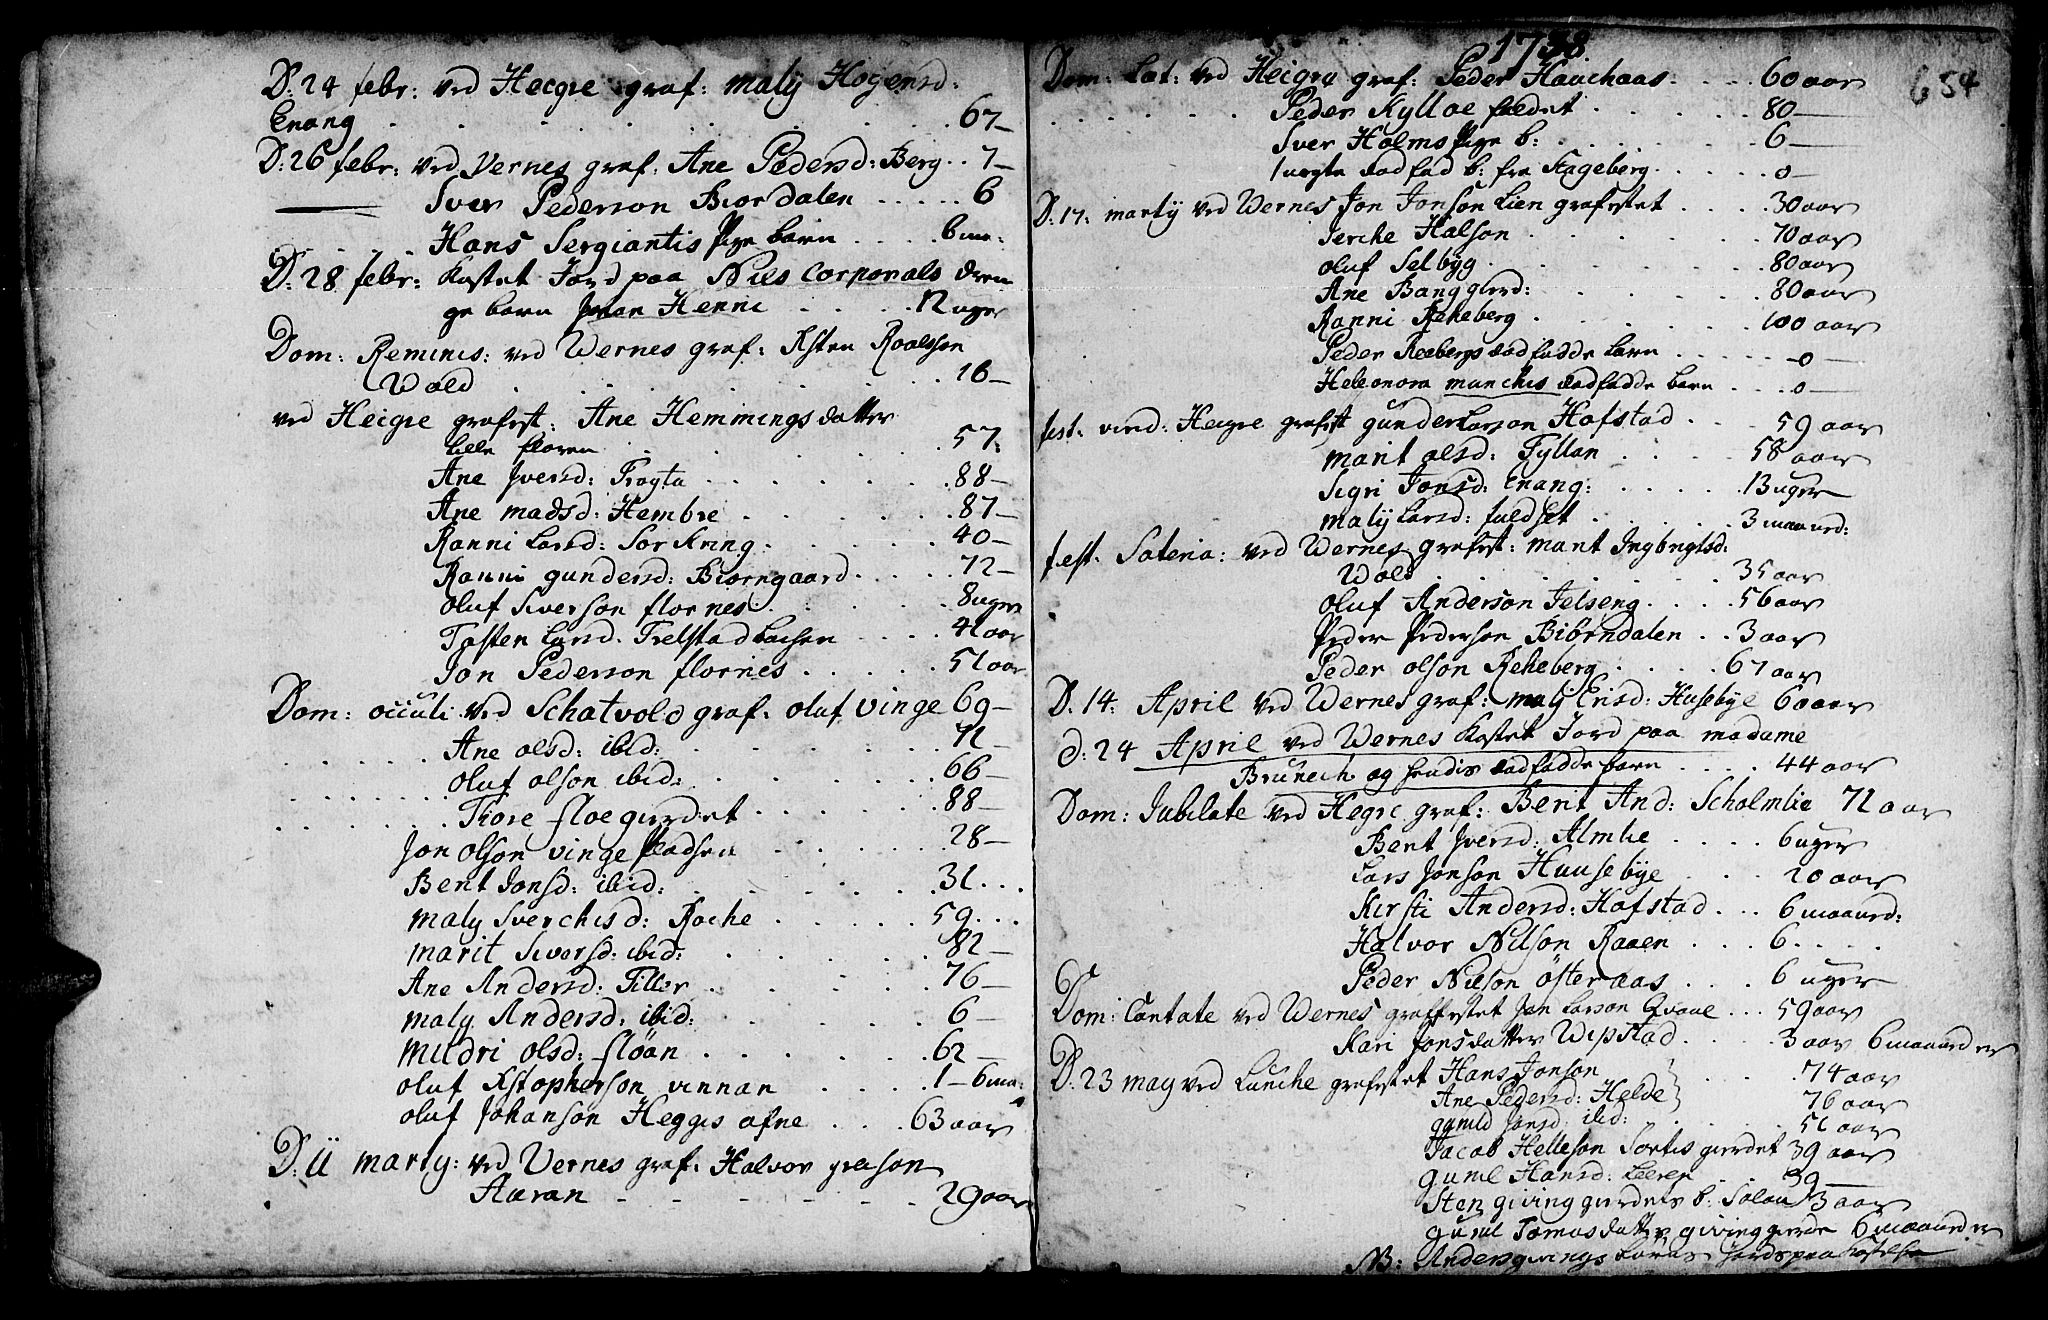 D: 24 febr: ved Hecgre graf: maly Hogensd:
Enang . . . 67 —
D: 26 febr: ved Vernes graf: Ane Pedersd: Berg . . 7 —
—— Sver Pederson Biordalen . . . . . 6
Hans Sergiantis Pige barn . . . . 6 mo:
D: 28 febr: Kastet Jord paa Niels Corporals dren
ge barn Johan Henni . . . . . 12 uger
Dom: Reminis: ved Wernes graf: Asten Roalsson
Wold . . . 16 —
ved Heigre grafest: Ane Hemmings datter
Lille floren . . . 57:
Ane Jversd: Trøgta . . . 88 —
Ane madsd: Hembre . . . 87 —
Ranni Larsd: Sorkring . . . 40 —
Ranni gundersd: Biorngaard . . . 72 —
Oluf Siverson flornes . . . 8 uger
Tosten Larsd: Trelstad . . . 41 aar
Jon Pederson flornes . . . 51 aar
Dom: occuli ved Schatvold graf: oluf vinge 69 —
Ane olsd: ibid: . . . 71 —
Oluf olson ibid: . . . 66 —
Thore floegierdet . . . 88 —
Jon Olson vinge Pladsen . . . 28 —
Berit Jonsd: ibid: . . . 31 . . .
maly Sverchisd: Roche . . . 59 . . .
marit Siversd: ibid: . . . 82 —
Ane Andersd: Tiller . . . 76 —
maly Andersd: ibid: . . . 6 —
Mildri olsd: floan . . . 62 —
oluf Xstopherson vinnan . . . 1 — 6 mo:
oluf Johanson Hegges afne . . . 63 aar
D: 11 marty: ved Vernes graf: Halvor
Aaran . . . 29 aar
1738
654
Dom: Læt: ved Heigre graf: Peder Haachaas . . . 60 aar
Peder Kylloe fædet . . . 80 —
Sver Holms Pige b: . . . 6 —
1 uegte dødfød b: fra Stageberg . . . 0 —
D: 17: marty ved Wernes Jon Jonson Lien grafestet . . . 30 aar
Jerche Halson . . . 70 aar
Oluf Selbyg . . . 80 aar
Ane Bang . . . 80 aar
Ranni Reheberg . . . 100 aar
Peder Reebergs dødfødde barn . . . 0 —
Heleonora munchis dødfødde barn . . . 0 —
fest: Heigre grafest gunder Larson Hofstad . . . 59 aar
marit olsd: Fyllan . . . 58 aar
Sigri Jonsd: Enang: . . . 13 uger
maly Larsd: fuldset . . . 3 maaned:
fest. ved Wernes grafest: marit Ingbrigtsd:
Wold . . . 35 aar
Oluf Anderson Jelseng . . . 56 aar
Peder Pederson Biörndalen . . 3 aar
Peder olson Reheberg . . . 67 aar
D. 14: April ved Wernes graf: maly Erisd: Husebye 60 aar
d: 24 April ved Wernes Kastet Jord paa madame
Brunech og hendis dødfødde barn . . . 44 aar
Dom: Jubilate ved Hegre graf: Berit And: Scholmlie 71 aar
Berit Jversd: Almlie . . . 6 uger
Lars Jonson Huusebye . . . 20 aar
Kirsti Andersd: Hofstad . . . 6 maaned:
Halvor Nilson Raaen . . . 6 . . . .
Peder Nilson österaas . . . 6 uger
Dom: Cantate ved Wernes graffestet Jon Larson Qvaal . . . 59 aar
Kari Jonsdatter Wipstad . . . 3 aar 6 maaneder
D: 23 may ved Lanche grafestet Hans Jonson . . . 74 aar
Ane Pedersd: Helde . . . 76 aar
gunild Jonsd: ibid: . . . 51 aar
Jacob Helleson Sortis gierdet 39 aar
gunil Hansd: Leeren . . . 39 —
Sten giving gierdets b. Salan 3 aar
gunil Tomasdatter giving gierde 6 maaneder
NB: Anders givings barns Jordspaakastelse